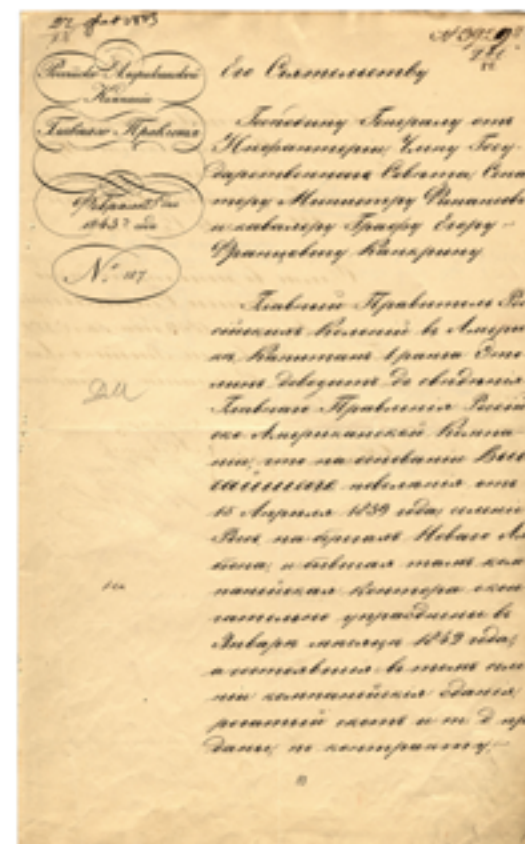 22 фев 1843
Россійско-Американской
Компаніи
Главнаго Правленія
Февраля
1843 года
№ 117
Его Сіятельству
Господину Генералу отъ
Инфантеріи, Члену Госу-
дарственнаго Совѣта, Сена
тору Министру Финансовъ
и кавалеру Графу Егору
Францовичу Канкрину
Главный Правитель Рос
сійскихъ Колоній въ Амери
кѣ Капитанъ 1 ранга Это
линъ доводитъ до свѣденія
Главнаго Правленія Россій
ско Американской Компа
ніи, что на основаніи Высо
чайшаго повелѣнія отъ
15 Апрѣля 1839 года, селеніе
Россъ на берегахъ Новаго Аль
біона, и бывшая тамъ ком
панейская Контора окон
чательно упразднены въ
Январѣ мѣсяцѣ 1842 года;
а состоявшія въ томъ селе
ніи компанейскія зданія
рогатый скотъ и т. д. пр
даны, по контракту,